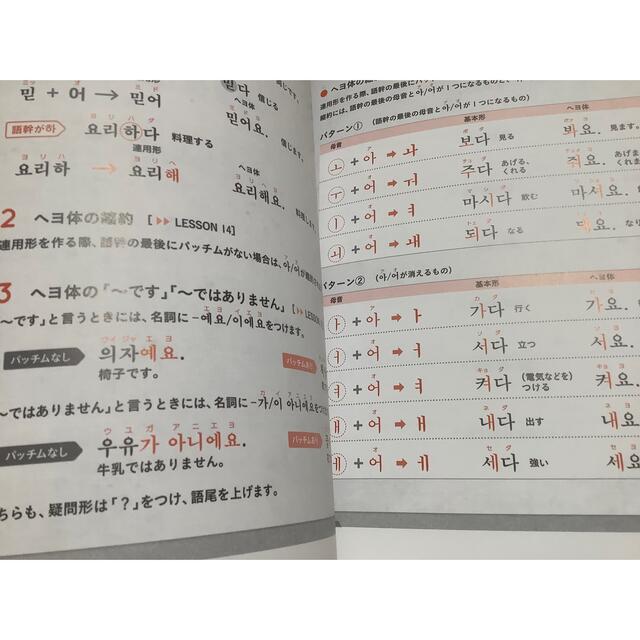 믿다 信じる
믿 + 어 → 믿어
ヘヨ体
믿어요. 信じます。
語幹が하 요리하다 料理する
連用形
요리하 → 요리해
ヘヨ体
요리해요.
2 ヘヨ体の縮約 [▶▶ LESSON 14]
連用形を作る際、語幹の最後にパッチムがない場合は、아/어が
3 ヘヨ体の「〜です」「〜ではありません」[▶▶ LESSON
〜です」と言うときには、名詞に-예요/이에요をつけます。
パッチムなし 의자예요.
椅子です。
パッチムあり
〜ではありません」と言うときには、名詞に-가/이 아니에요をつ
パッチムなし 우유가 아니에요.
牛乳ではありません。
パッチムあり
ちらも、疑問形は「?」をつけ、語尾を上げます。
連用形を作る際、語幹の最後にパッ
縮約には、語幹の最後の母音と아/어が1つになるものと、
パターン① (語幹の最後の母音と아/어が1つになるもの)
母音 基本形 ヘヨ体
ㅗ + 아 ➡ ㅘ 보다 見る 봐요. 見ます。
ㅜ + 어 ➡ ㅝ 주다 あげる、くれる 줘요.
ㅣ + 어 ➡ ㅕ 마시다 飲む 마셔요.
ㅚ + 어 ➡ ㅙ 되다 なる 돼요.
パターン② (아/어が消えるもの)
母音 基本形 ヘヨ体
ㅏ + 아 ➡ ㅏ 가다 行く 가요.
ㅓ + 어 ➡ ㅓ 서다 立つ 서요.
ㅕ + 어 ➡ ㅕ 켜다 (電気などを)つける 켜요.
ㅐ + 어 ➡ ㅐ 내다 出す 내요.
ㅔ + 어 ➡ ㅔ 세다 強い 세요